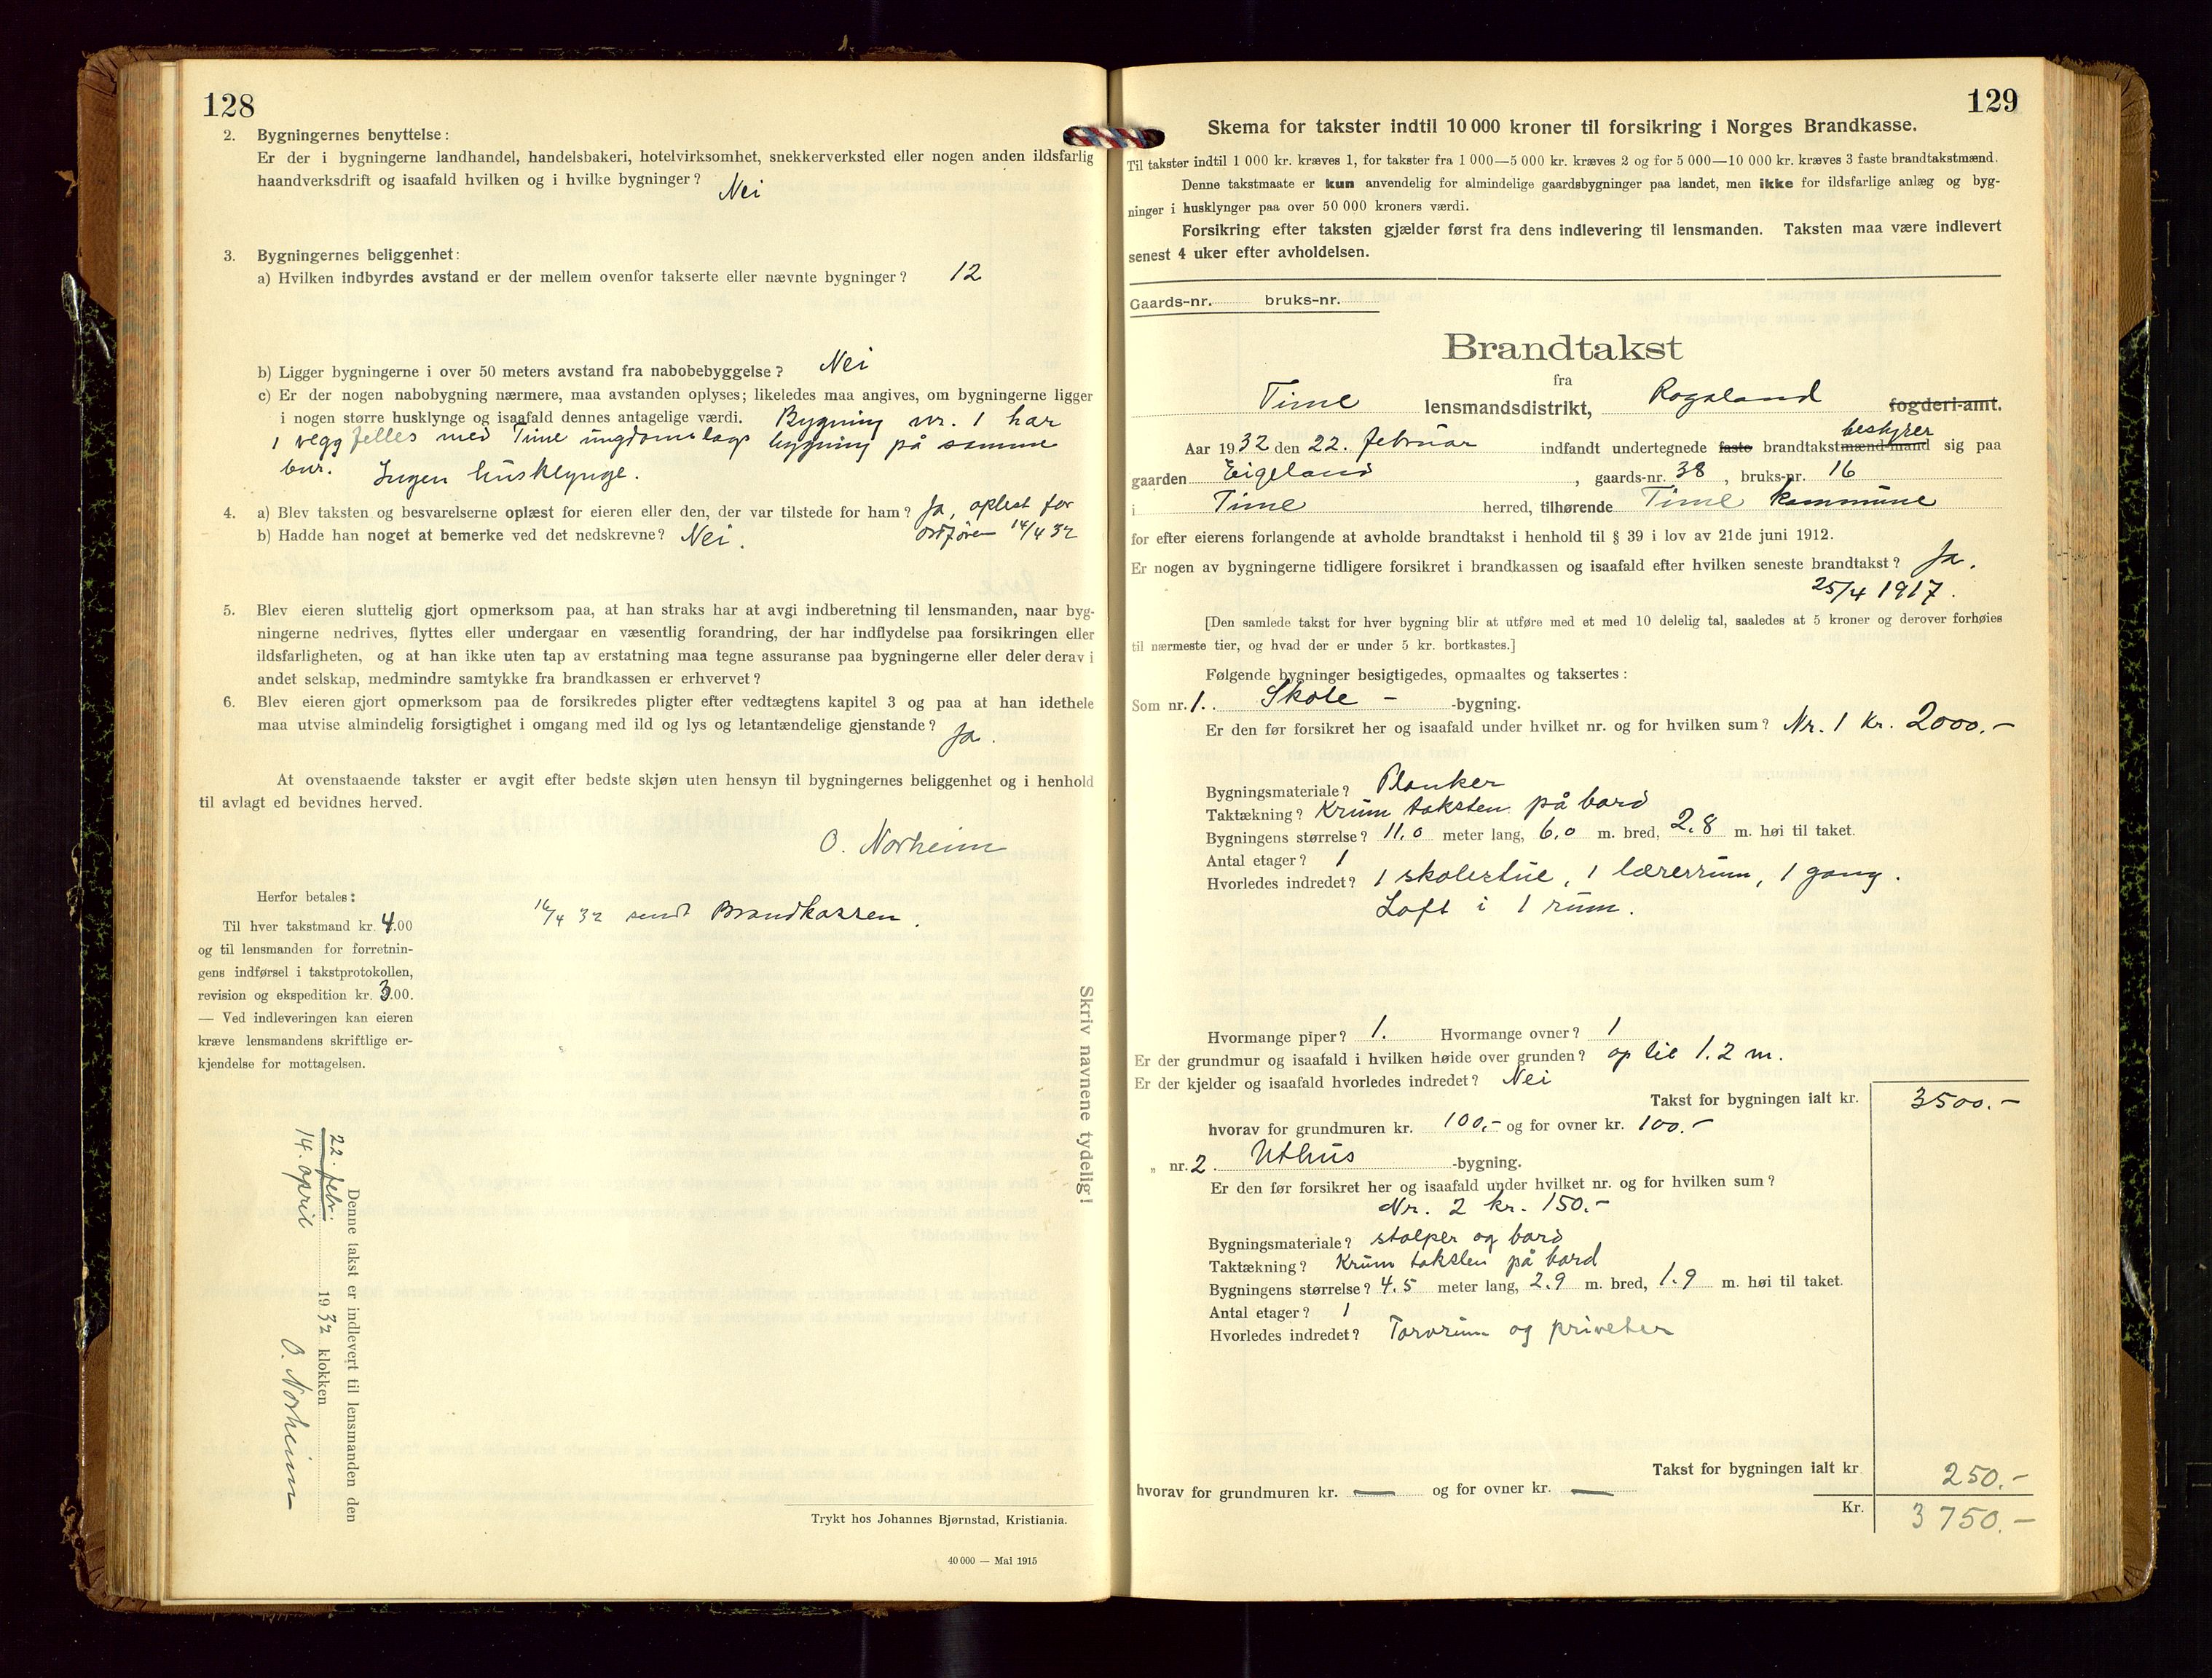 128
2. Bygningernes benyttelse:
Er der i bygningerne landhandel, handelsbakeri, hotelvirksomhet, snekkerverksted eller nogen anden ildsfarlig
haandverksdrift og isaafald hvilken og i hvilke bygninger? Nei
3. Bygningernes beliggenhet:
a) Hvilken indbyrdes avstand er der mellem ovenfor takserte eller nævnte bygninger? 12
b) Ligger bygningerne i over 50 meters avstand fra nabobebyggelse? Nei
c) Er der nogen nabobygning nærmere, maa avstanden oplyses; likeledes maa angives, om bygningerne ligger
i nogen større husklynge og isaafald dennes antagelige værdi. Bygning nr. 1 har
1 vegg felles med Time ungdomslags bygning på samme
bnr. Ingen husklynge.
4. a) Blev taksten og besvarelserne oplæst for eieren eller den, der var tilstede for ham? Ja, oplest for
b) Hadde han noget at bemerke ved det nedskrevne? Nei. ordføren 14/4 32
5. Blev eieren sluttelig gjort opmerksom paa, at han straks har at avgi indberetning til lensmanden, naar byg-
ningerne nedrives, flyttes eller undergaar en væsentlig forandring, der har indflydelse paa forsikringen eller
ildsfarligheten, og at han ikke uten tap av erstatning maa tegne assuranse paa bygningerne eller deler derav i
andet selskap, medmindre samtykke fra brandkassen er erhvervet?
6. Blev eieren gjort opmerksom paa de forsikredes pligter efter vedtægtens kapitel 3 og paa at han idethele
maa utvise almindelig forsigtighet i omgang med ild og lys og letantændelige gjenstande? Ja.
At ovenstaaende takster er avgit efter bedste skjøn uten hensyn til bygningernes beliggenhet og i henhold
til avlagt ed bevidnes herved.
O. Norheim
Herfor betales:
Til hver takstmand kr. 4.00
og til lensmanden for forretnin-
gens indførsel i takstprotokollen,
revision og ekspedition kr. 3.00.
— Ved indleveringen kan eieren
kræve lensmandens skriftlige er-
kjendelse for mottagelsen.
16/4 32 sendt Brandkassen.
Skriv navnene tydelig!
Denne takst er indlevert til lensmanden den
22. febr.
14. april 1932 klokken
O. Norheim
Trykt hos Johannes Bjørnstad, Kristiania.
40 000 — Mai 1915
129
Skema for takster indtil 10 000 kroner til forsikring i Norges Brandkasse.
Til takster indtil 1 000 kr. kræves 1, for takster fra 1 000—5 000 kr. kræves 2 og for 5 000—10 000 kr. kræves 3 faste brandtakstmænd.
Denne takstmaate er kun anvendelig for almindelige gaardsbygninger paa landet, men ikke for ildsfarlige anlæg og byg-
ninger i husklynger paa over 50 000 kroners værdi.
Forsikring efter taksten gjælder først fra dens indlevering til lensmanden. Taksten maa være indlevert
senest 4 uker efter avholdelsen.
Gaards-nr. bruks-nr.
Brandtakst
fra
Time lensmandsdistrikt, Rogaland fogderi-amt.
bestyrer
Aar 1932 den 22. februar indfandt undertegnede faste brandtakstmænd-mand sig paa
gaarden Eigeland, gaards-nr. 38, bruks-nr. 16
i Time herred, tilhørende Time kommune
for efter eierens forlangende at avholde brandtakst i henhold til § 39 i lov av 21de juni 1912.
Er nogen av bygningerne tidligere forsikret i brandkassen og isaafald efter hvilken seneste brandtakst? Ja.
25/4 1917.
[Den samlede takst for hver bygning blir at utføre med et med 10 delelig tal, saaledes at 5 kroner og derover forhøies
til nærmeste tier, og hvad der er under 5 kr. bortkastes.]
Følgende bygninger besigtigedes, opmaaltes og taksertes:
Som nr. 1. Skole - -bygning.
Er den før forsikret her og isaafald under hvilket nr. og for hvilken sum? Nr. 1 kr. 2000.-
Bygningsmateriale? Planker
Taktækning? Krum taksten på bord
Bygningens størrelse? 11.0 meter lang, 6.0 m. bred, 2.8 m. høi til taket.
Antal etager? 1
Hvorledes indredet? 1 skolestue, 1 lærerrum, 1 gang.
Loft i 1 rum.
Hvormange piper? 1. Hvormange ovner? 1
Er der grundmur og isaafald i hvilken høide over grunden? op til 1.2 m.
Er der kjelder og isaafald hvorledes indredet? Nei
Takst for bygningen ialt kr. 3500.-
hvorav for grundmuren kr. 100.- og for ovner kr. 100.-
„ nr. 2. Uthus -bygning.
Er den før forsikret her og isaafald under hvilket nr. og for hvilken sum?
Nr. 2 kr. 150.-
Bygningsmateriale? stolper og bord
Taktækning? Krum taksten på bord
Bygningens størrelse? 4.5 meter lang, 2.9 m. bred, 1.9 m. høi til taket.
Antal etager? 1
Hvorledes indredet? Torvrum og priveter
Takst for bygningen ialt kr 250.-
hvorav for grundmuren kr. — og for ovner kr. —
Kr. 3750.-